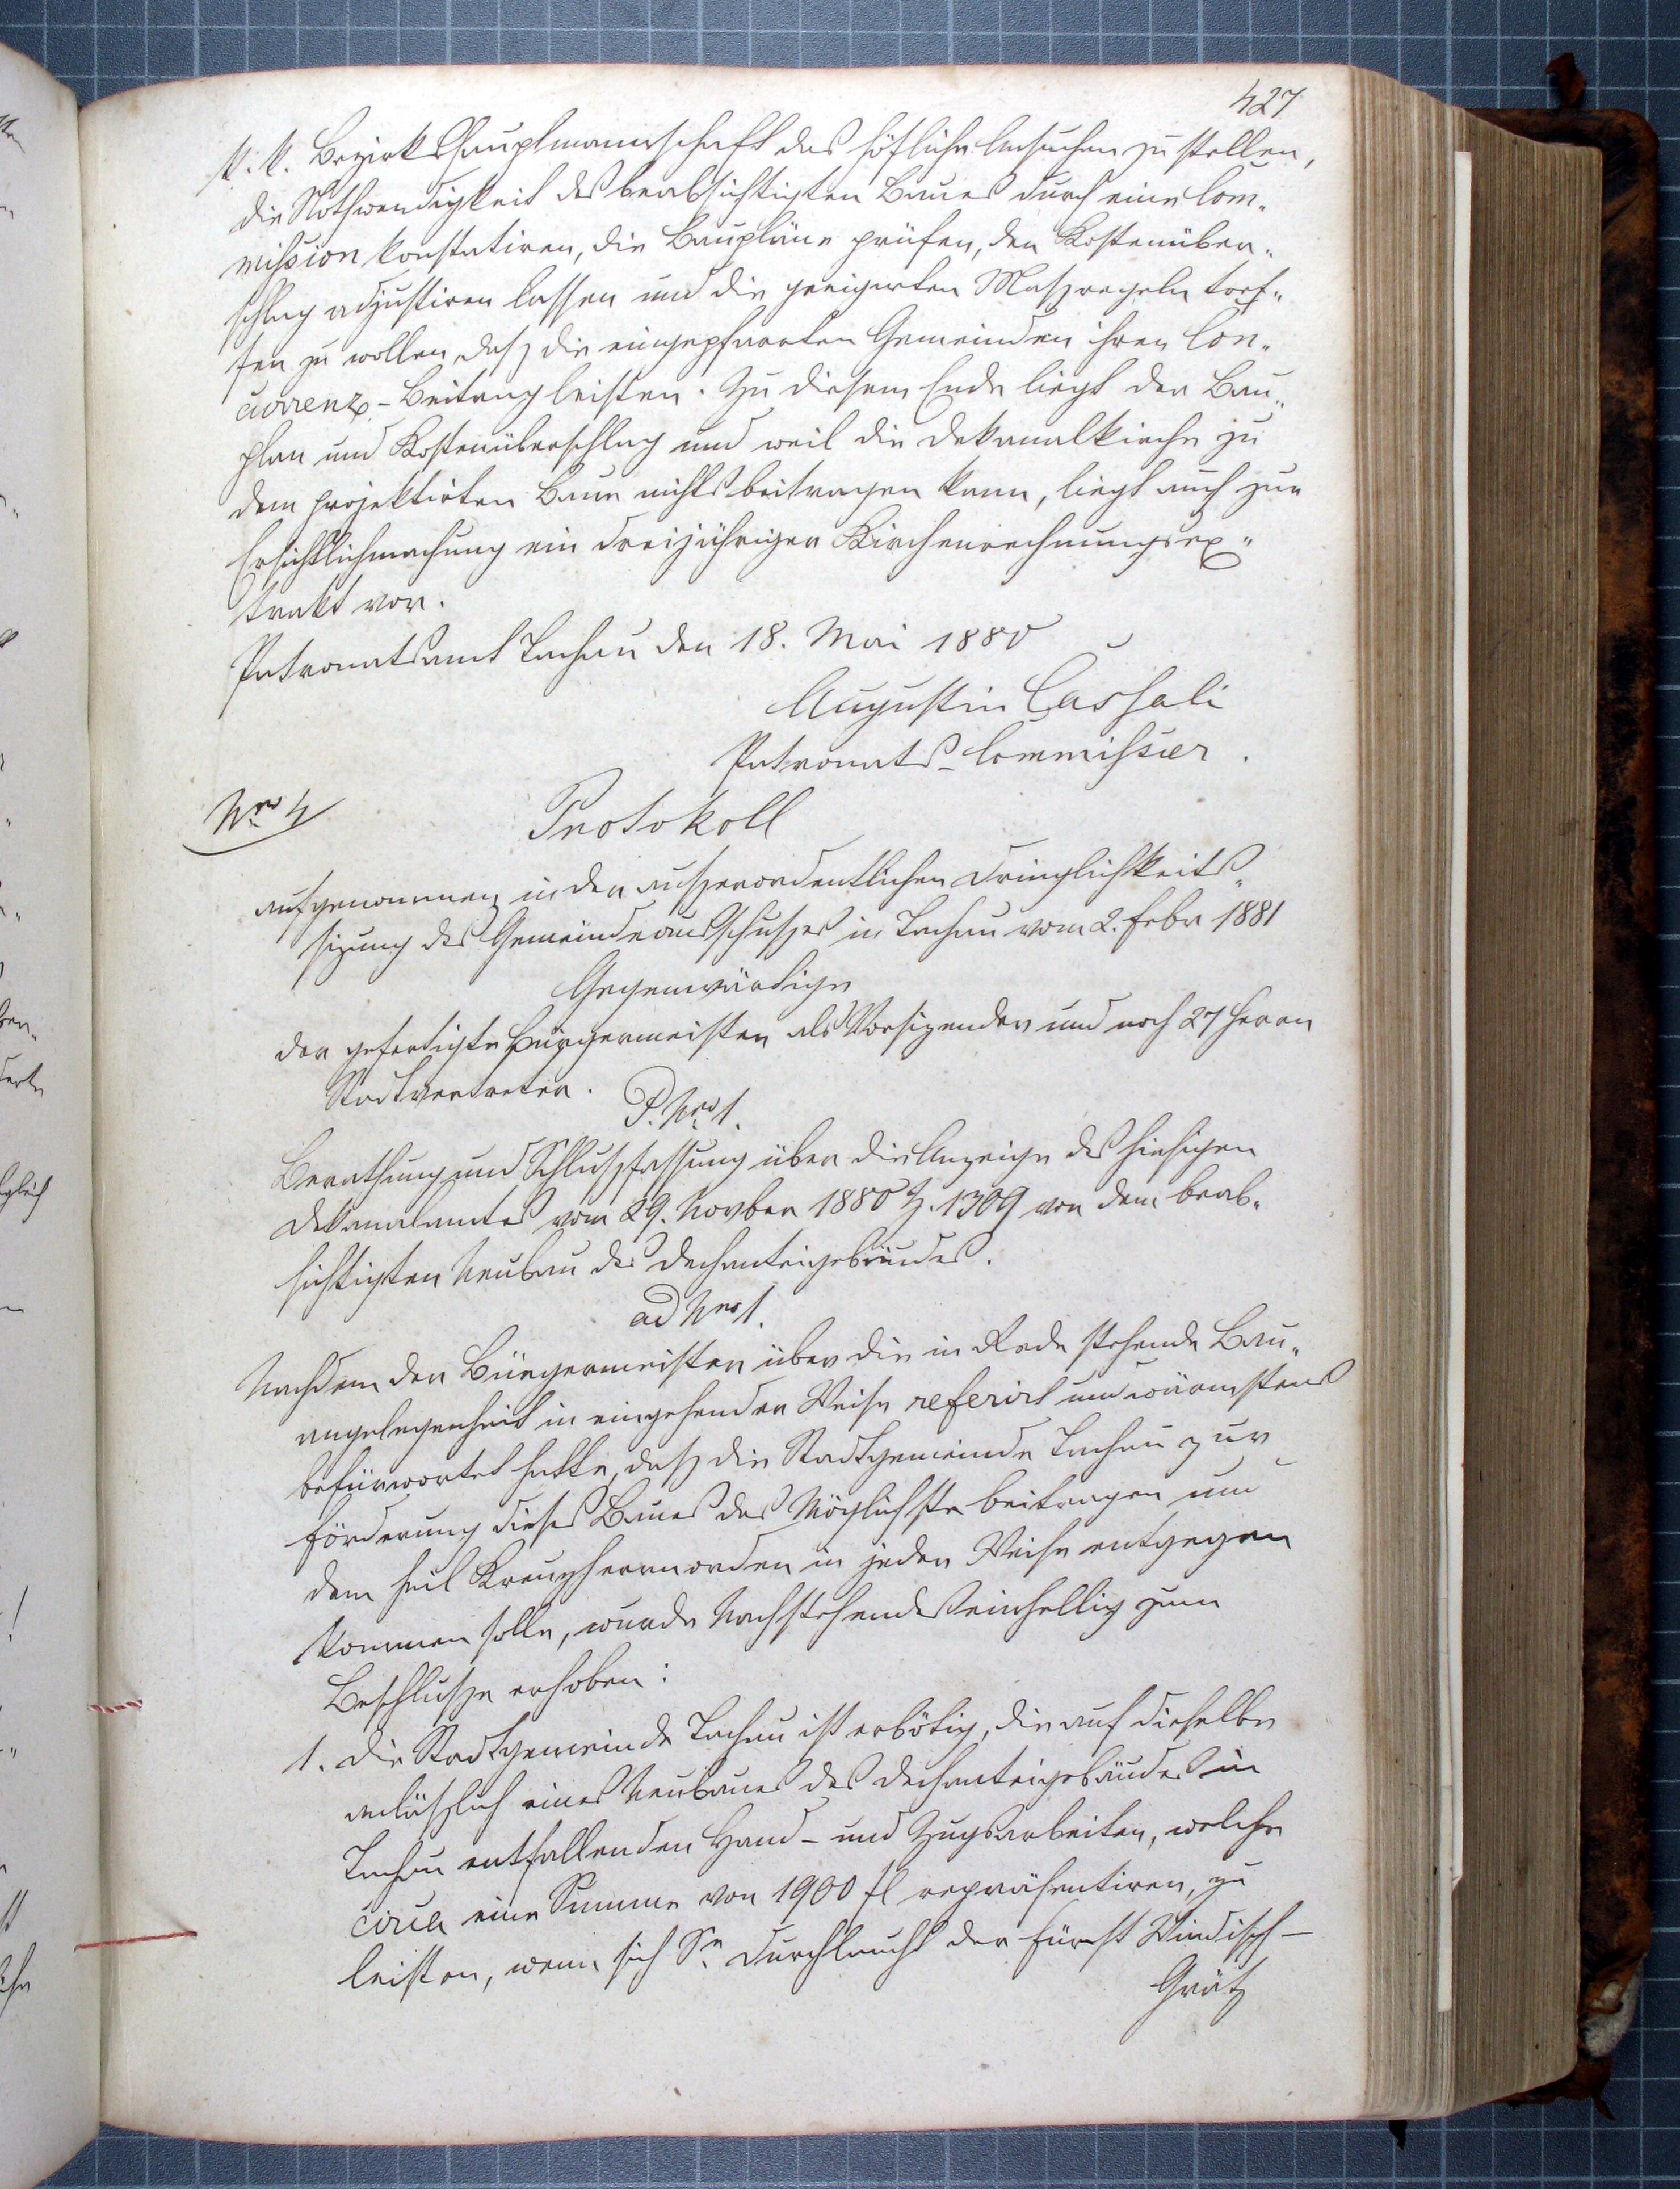 427
k. k. Bezirkshauptmannschaft das höfliche Ansuchen zu stellen,
die Nothwendigkeit des beabsichtigten Baues durch eine Com-
mission konstatiren, die Baupläne prüfen, den Kostenüber-
schlag adjustiren lassen und die geeigneten Maszregeln tref-
fen zu wollen, dasz die eingepfarrten Gemeinden ihren Con-
currenz-Beitrag leisten. Zu diesem Ende liegt der Bau-
plan und Kostenüberschlag und weil die Dekanalkirche zu
dem projektirten Baue nichts beitragen kann, liegt auch zur
Ersichtlichmachung ein dreijähriger Kirchenrechnungsex-
trakt vor.
Patronatsamt Tachau den 18. Mai 1880
Augustin Cassali
Patronats-Commissier.
Nro 4
Protokoll
aufgenommen in der auszerordentlichen Dringlichkeits-
sizung des Gemeindeausschuszes in Tachau vom 2. Febr 1881
Gegenwärtige
der gefertigte Bürgermeister als Vorsizender und noch 27 Herrn
Stadtvertreter.
P. Nro 1.
Berathung und Schluszfassung über die Anzeige des hiesigen
Dekanalamtes vom 29. Novber 1880 Z. 1309 von dem beab-
sichtigten Neubau des Dechanteigebäudes.
ad Nro 1.
Nachdem der Bürgermeister über die in Rede stehende Bau-
angelegenheit in eingehender Weise referirt und wärmstens
befürwortet hatte, dasz die Stadtgemeinde Tachau zur
Förderung dieses Baues das Möglichste beitragen und
dem heil Kreuzherrnorden in jeder Weise entgegen
kommen solle, wurde Nachstehendes einhellig zum
Beschlusze erhoben:
1. Die Stadtgemeinde Tachau ist erbötig, die auf dieselbe
anläszlich eines Neubaues des Dechanteigebäudes in
Tachau entfallenden Hand- und Zugsarbeiten, welche
circa eine Summe von 1900 fl repräsentiren, zu
leisten, wenn sich Sr. Durchlaucht der Fürst Windisch-
Grätz